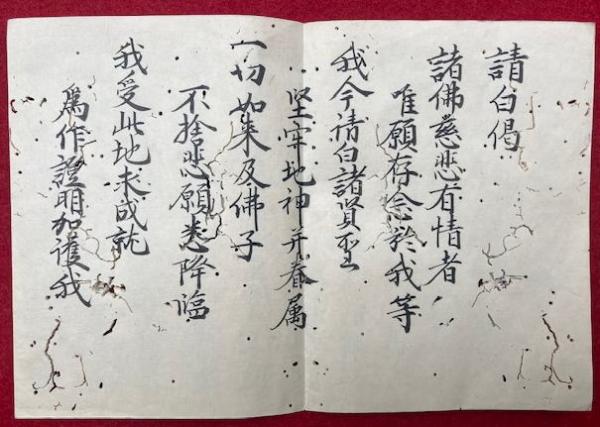 請白偈
諸佛慈悲有情者
唯願存念於我等
我今請白諸賢聖
堅牢地神并眷属
一切如来及佛子
不捨悲願悉降臨
我受此地求成就
為作證明加護我